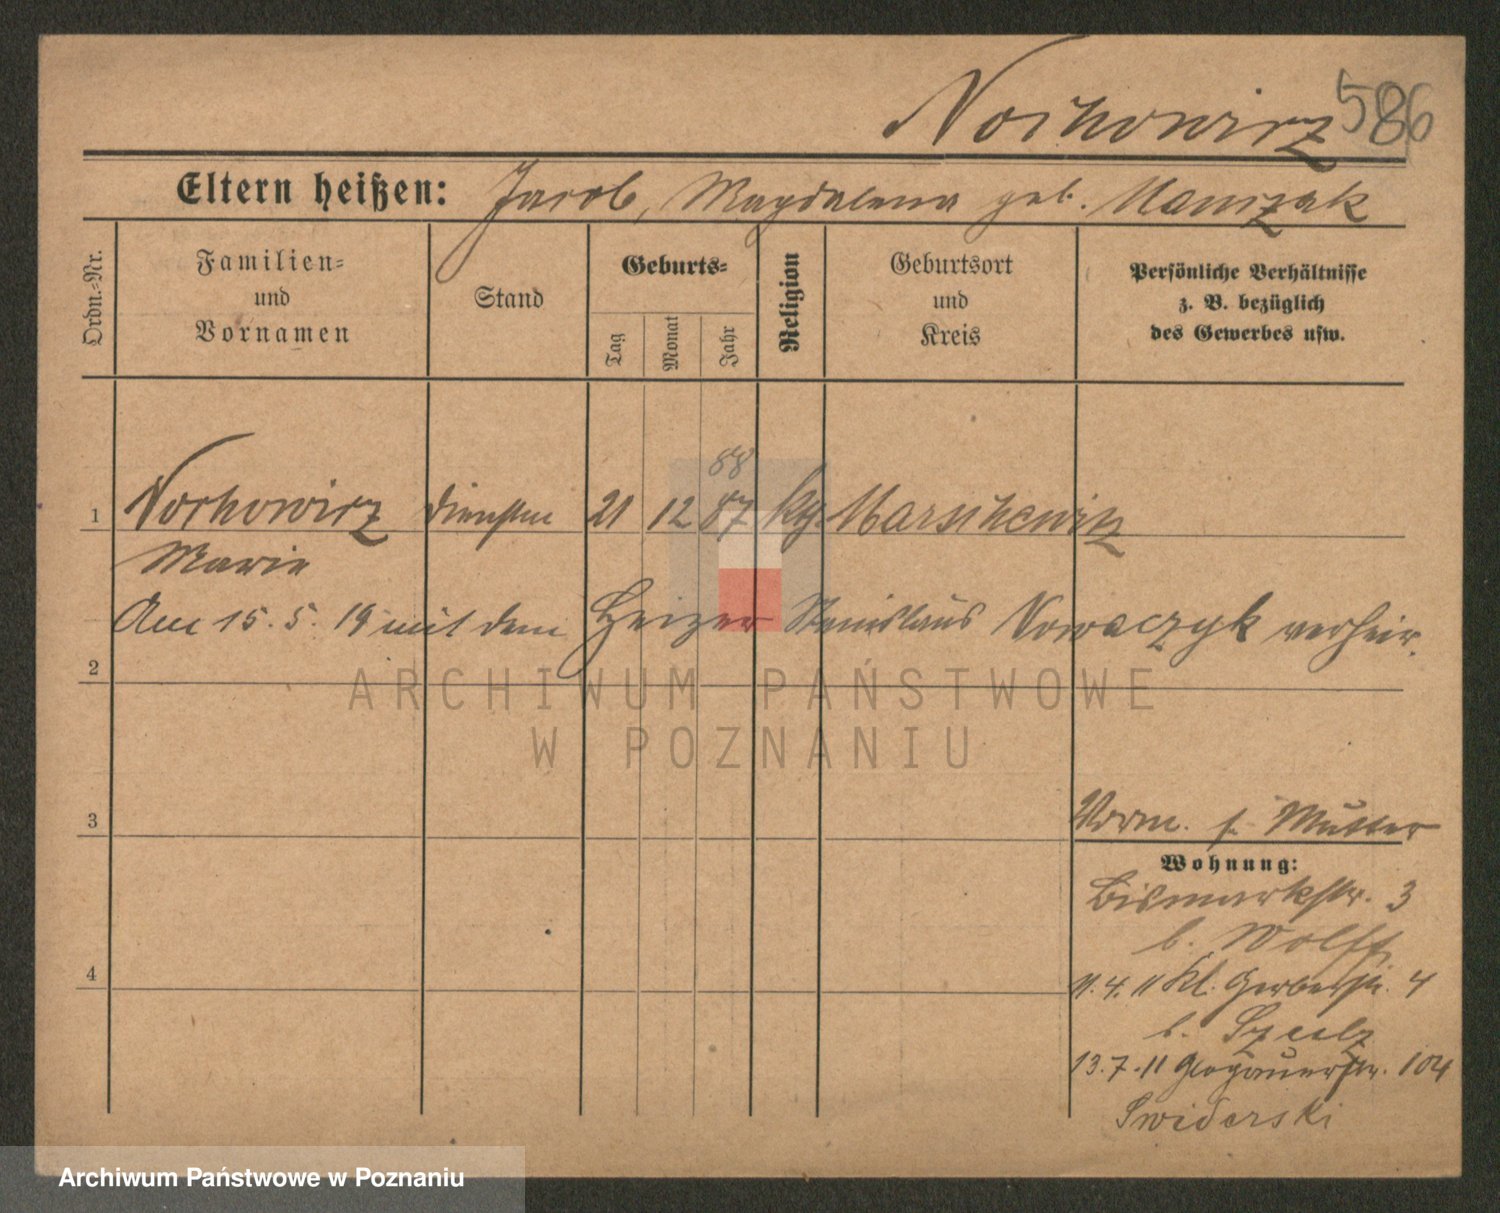 Nochowicz 586
Eltern heißen: Jacob, Magdalena geb.
Ordn.-Nr.
Familien-
und
Vornamen
Stand
Geburts-
Tag
Monat
Jahr
Religion
Geburtsort
und
Kreis
Persönliche Verhältnisse
z. B. bezüglich
des Gewerbes usw.
88
1 Nochowicz 21 12 87 Marschewitz
Marie
Am 15. 5. 19 mit dem Heizer Stanislaus Nowaczyk verheir.
2
3
Vorm. s. Mutter
Wohnung:
Bismarkstr. 3
b. Wolff
4
11. 4. 11 Kl. Gerberstr. 4
b. Szulz
13. 7. 11 Glogauerstr. 104
Swiderski
ARCHIWUM PAŃSTWOWE
W POZNANIU
Archiwum Państwowe w Poznaniu